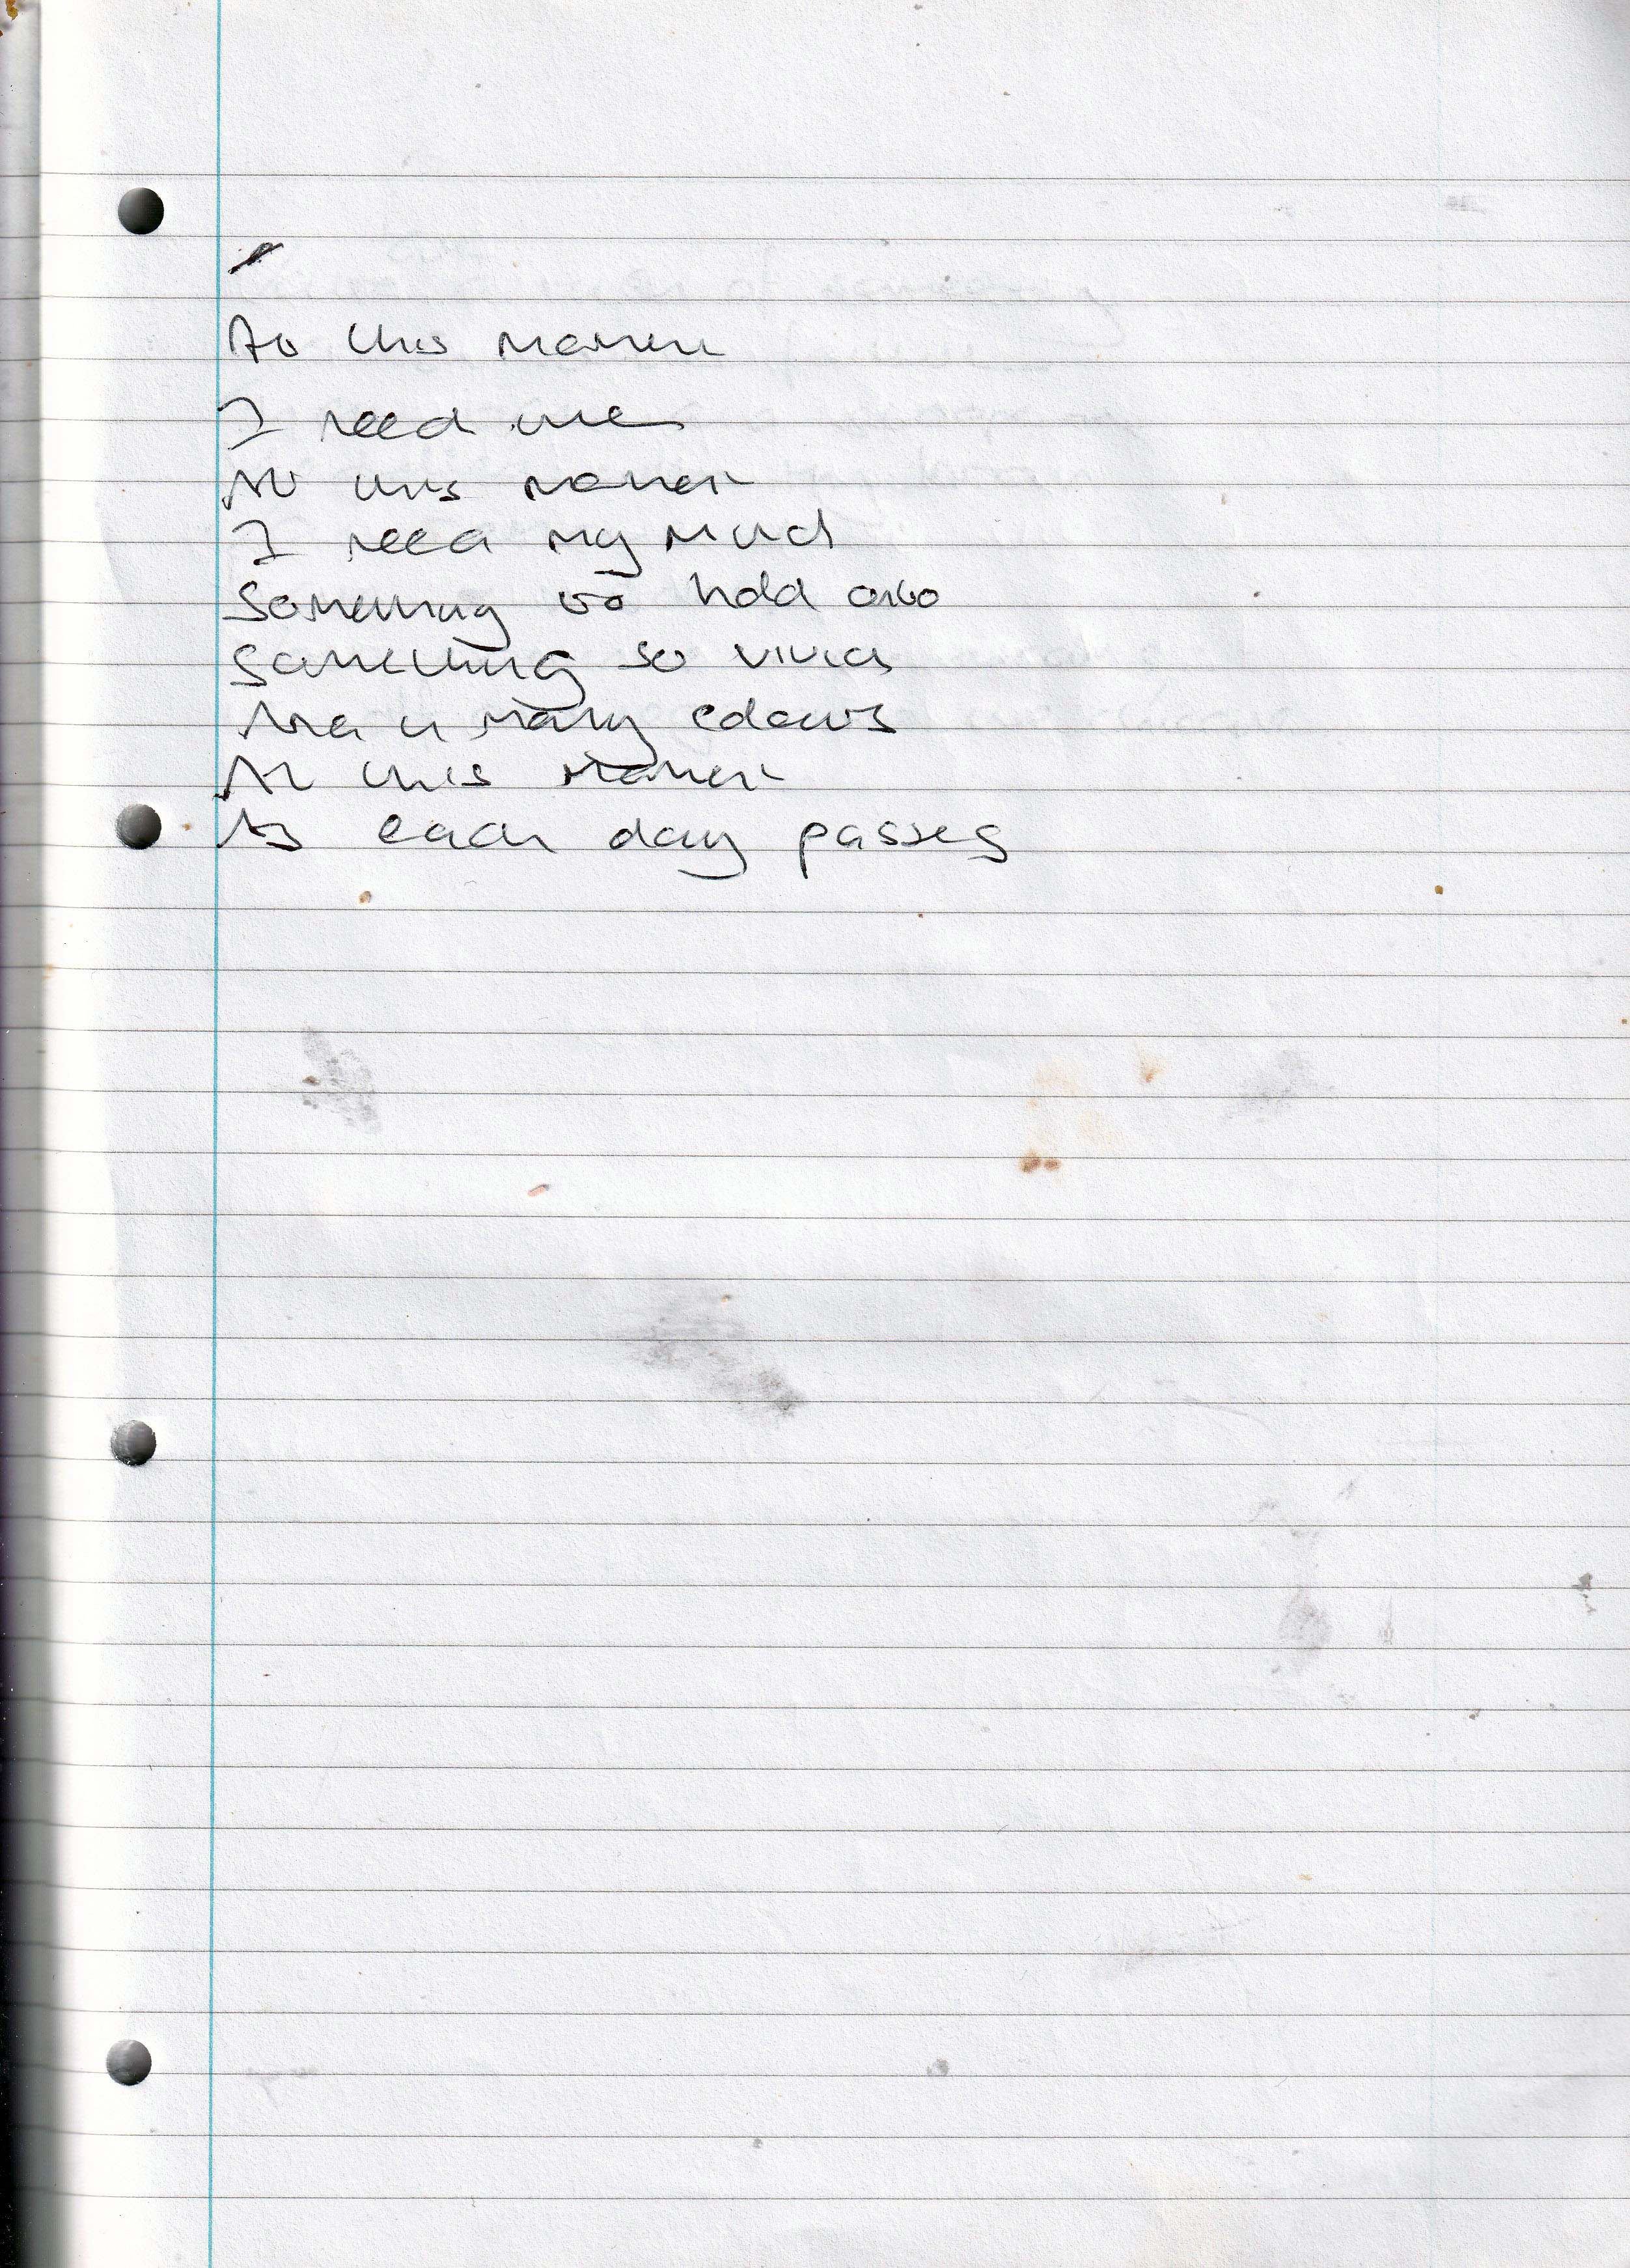 At this moment
I need me
At this moment
I need my mind
Something to hold onto
Something so vivid
many colours
At this moment
As each day passes